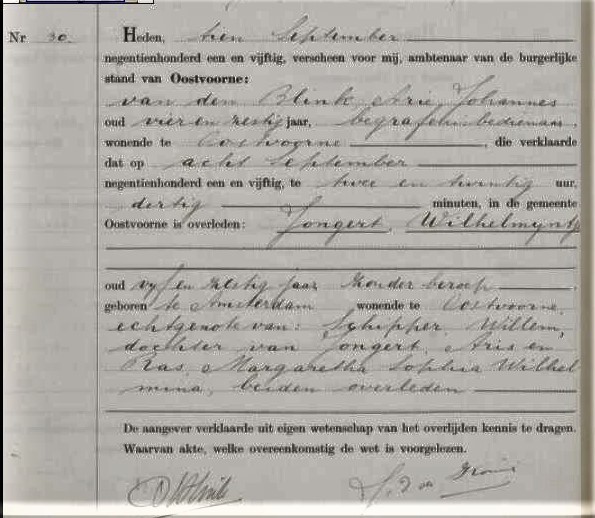 Nr 30. Heden, tien September
negentienhonderd een en vijftig, verscheen voor mij, ambtenaar van de burgerlijke
stand van Oostvoorne:
van den Blink, Arie Johannes
oud vier en zestig jaar, begrafenisbedienaar,
wonende te Oostvoorne, die verklaarde
dat op acht September
negentienhonderd een en vijftig, te twee en twintig uur,
dertig minuten, in de gemeente
Oostvoorne is overleden: Jongert, Wilhelmyntje
oud vyf en zestig jaar, zonder beroep,
geboren te Amsterdam wonende te Oostvoorne,
echtgenote van: Schipper, Willem,
dochter van Jongert, Aris en
Ras, Margaretha Sophia Wilhel
mina, beiden overleden
De aangever verklaarde uit eigen wetenschap van het overlijden kennis te dragen.
Waarvan akte, welke overeenkomstig de wet is voorgelezen.